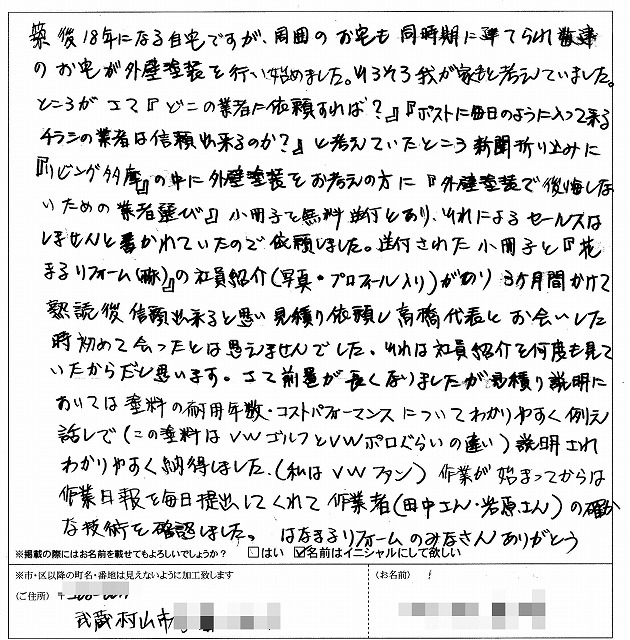 築後18年になる自宅ですが、周囲のお宅も同時期に建てられ数速
のお宅が外壁塗装を行い始めました。そろそろ我が家もと考えていました。
ところがさて『どこの業者に依頼すれば？』『ポストに毎日のように入って来る
チラシの業者は信頼出来るのか？』と考えていたところ新聞折り込みに
『リビング多摩』の中に外壁塗装をお考えの方に『外壁塗装で後悔しな
いための業者選び』小冊子を無料送付とあり、それによるセールスは
しませんと書かれていたので依頼しました。送付された小冊子と『花
まるリフォーム(株)』の社員紹介(写真・プロフィール入り)があり3ヶ月間かけて
熟読後信頼出来ると思い見積り依頼し高橋代表とお会いした
時初めて会ったとは思えませんでした。それは社員紹介を何度も見て
いたからだと思います。さて前置が長くなりましたが見積り説明に
おいては塗料の耐用年数・コストパフォーマンスについてわかりやすく例え
話しで(この塗料はVWゴルフとVWポロぐらいの違い)説明され
わかりやすく納得しました。(私はVWファン)作業が始まってからは
作業日報を毎日提出してくれて作業者(田中さん・岩原さん)の確か
な技術を確認しました。はなまるリフォームのみなさんありがとう
※掲載の際にはお名前を載せてもよろしいでしょうか？ □はい ☑名前はイニシャルにして欲しい
※市・区以降の町名・番地は見えないように加工致します
(ご住所) 〒
武蔵村山市
(お名前)